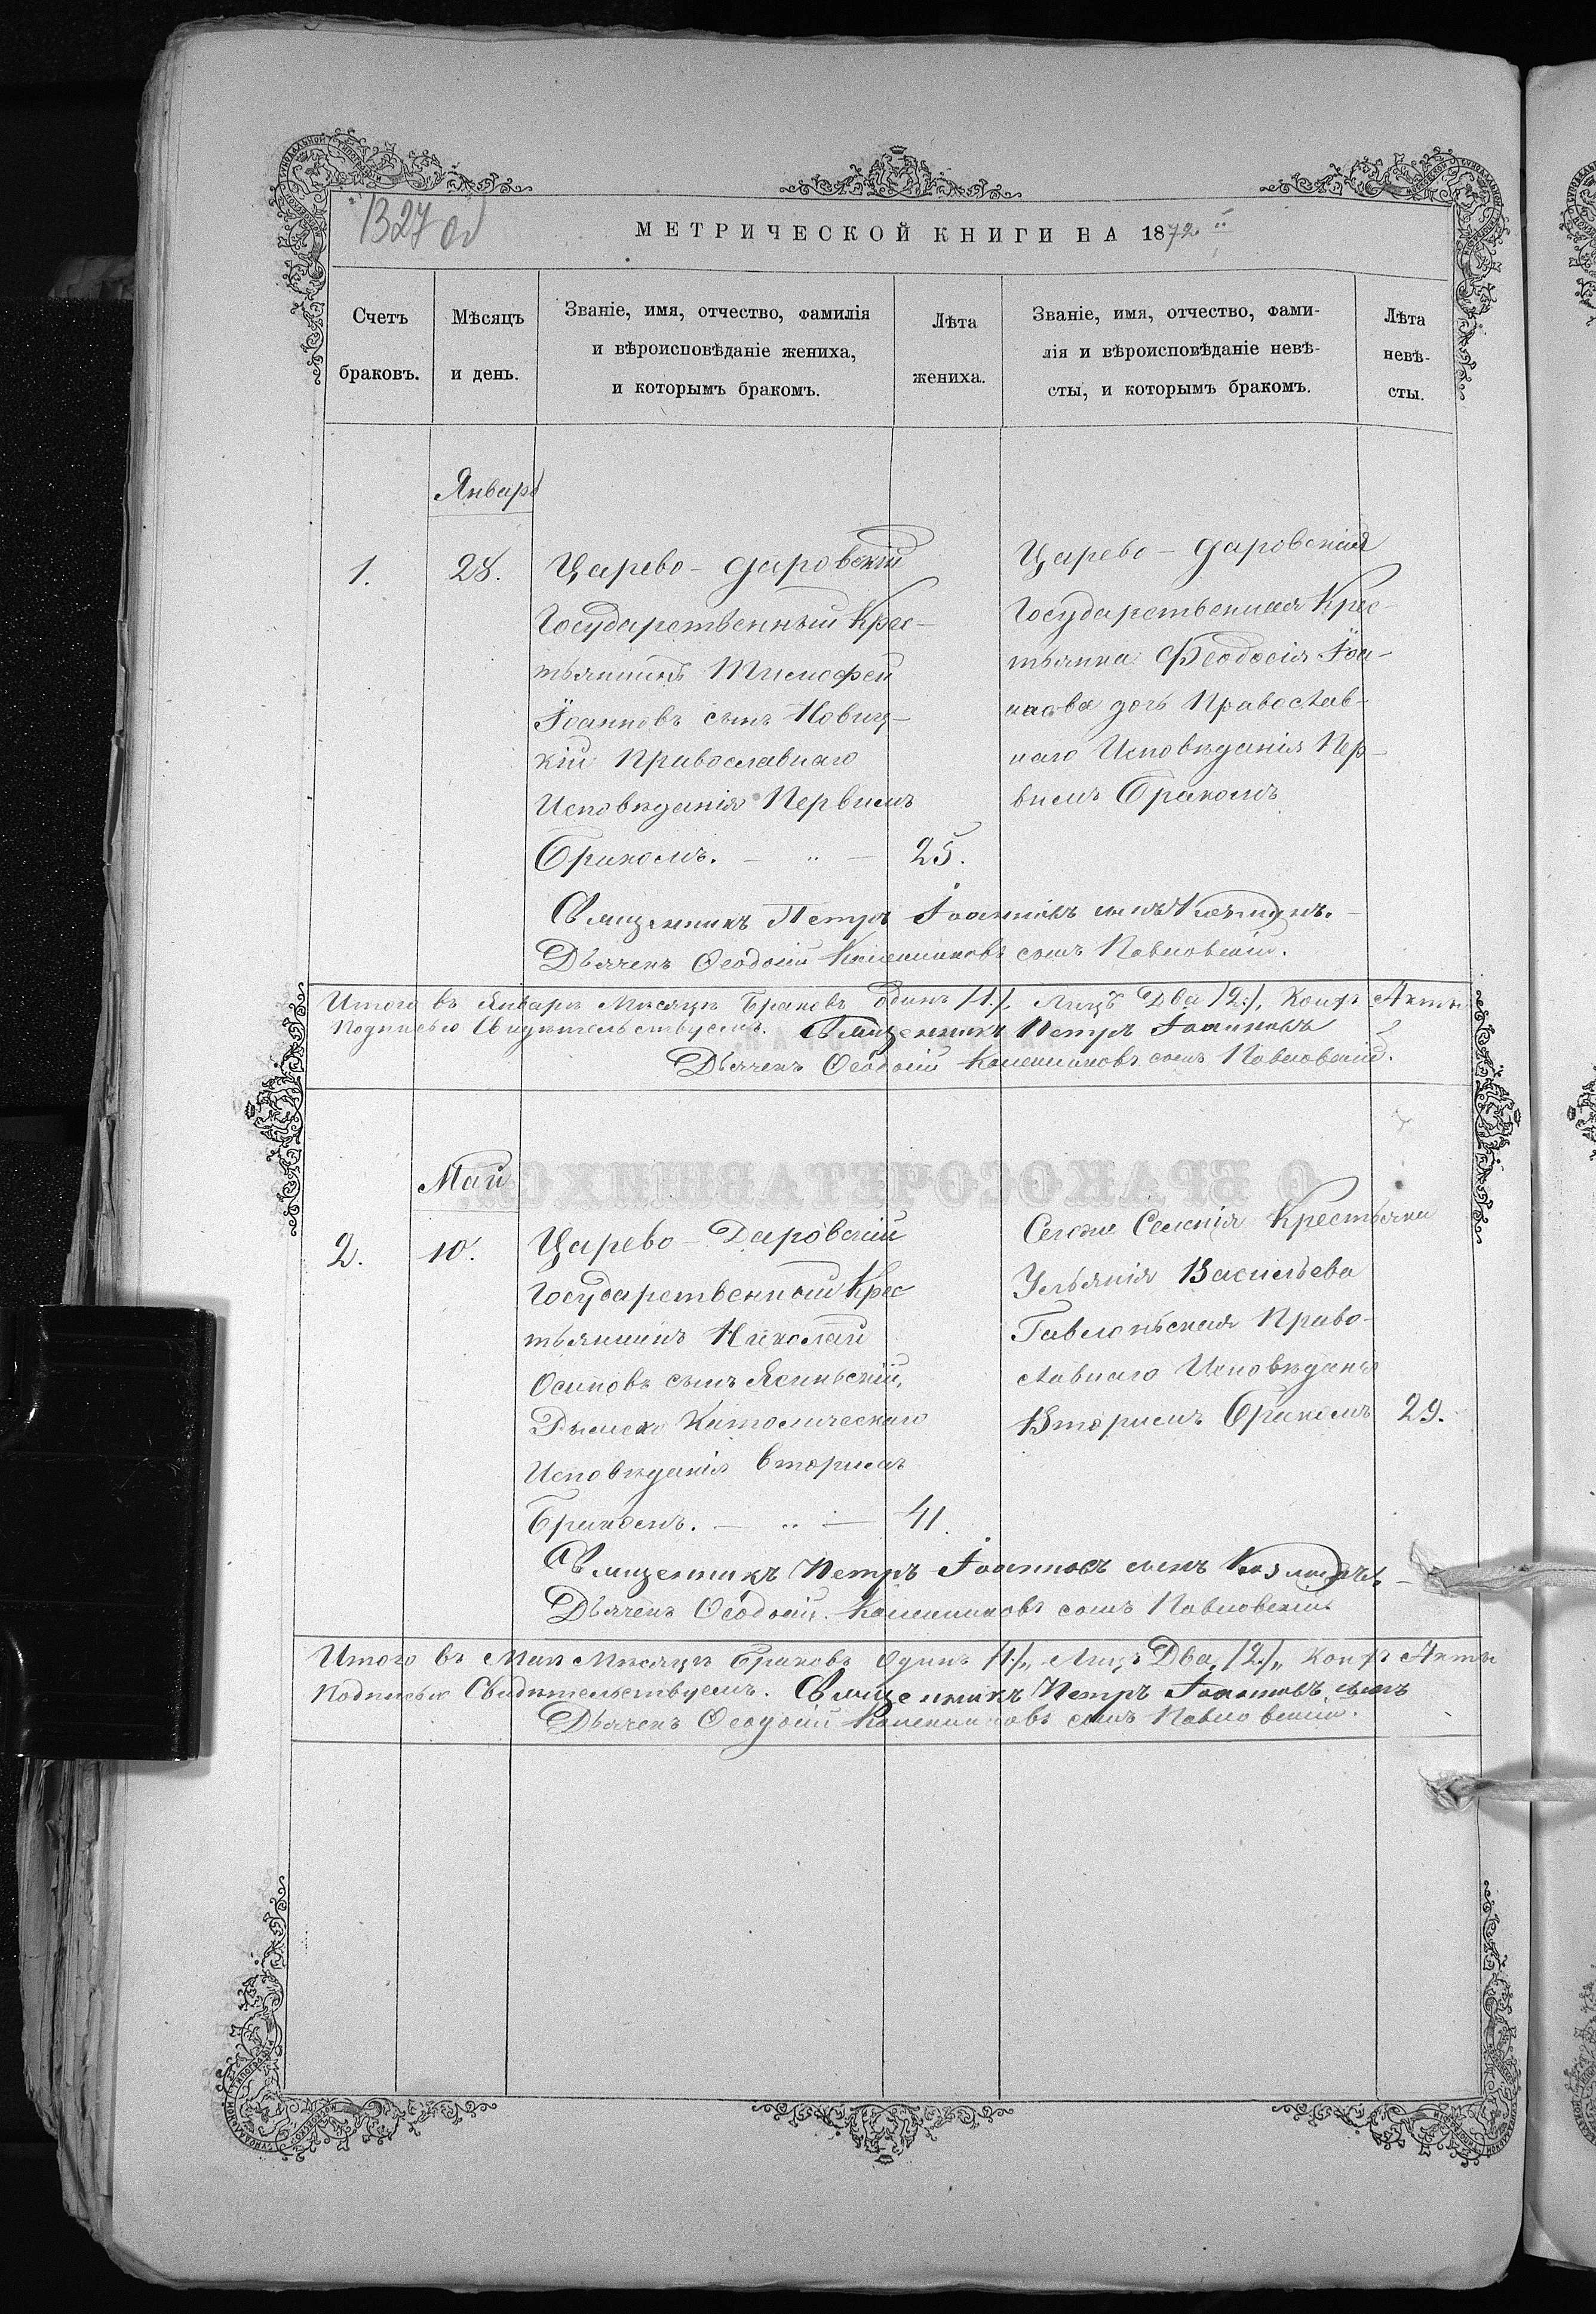 1327 об
МЕТРИЧЕСКОЙ КНИГИ НА 1872й
Счетъ браковъ.
Мѣсяцъ и день.
Званіе, имя, отчество, фамилія
и вѣроисповѣданіе жениха,
и которымъ бракомъ.
Лѣта жениха.
Званіе, имя, отчество, фами-
лія и вѣроисповѣданіе невѣ-
сты, и которымъ бракомъ.
Лѣта невѣ-
сты.
Январь
1.
28.
Царево-Даровскій
Государственный Крес-
тьянинъ Тимофей
Іоанновъ сынъ Новиц-
кій Православнаго
Исповѣданія Первимъ
Бракомъ.
25.
Царево-Даровская
Государственная Крес-
тьянка Феодосія Іоа-
нова дочь Православ-
наго Исповѣданія Пер-
вимъ Бракомъ
Священникъ Петръ Іоанновъ сынъ
Дьячекъ Ѳеодосій сынъ Павловскій.
Итого въ Январѣ Мѣсяцѣ Браковъ Одинъ /1./, Лицъ Два /2./,
Подписью Свидѣтельствуемъ. Священникъ Петръ Іоанновъ
Дьячекъ Ѳеодосій сынъ Павловскій.
Май
2.
10.
Царево-Даровскій
Государственный Крес
тьянинъ Николай
Осиповъ сынъ
Римско Католическаго
Исповѣданія вторимъ
Бракомъ.
41.
Крестьянка
Ульянія Васильева
Право-
славнаго Исповѣданія
Вторимъ Бракомъ
29.
Священникъ Петръ Іоанновъ сынъ
Дьячекъ Ѳеодосій сынъ Павловскій
Итого въ Маѣ Мѣсяцѣ Браковъ Одинъ /1./, Лицъ Два /2./,
Подписью Свидѣтельствуемъ. Священникъ Петръ Іоанновъ сынъ
Дьячекъ Ѳеодосій сынъ Павловскій.